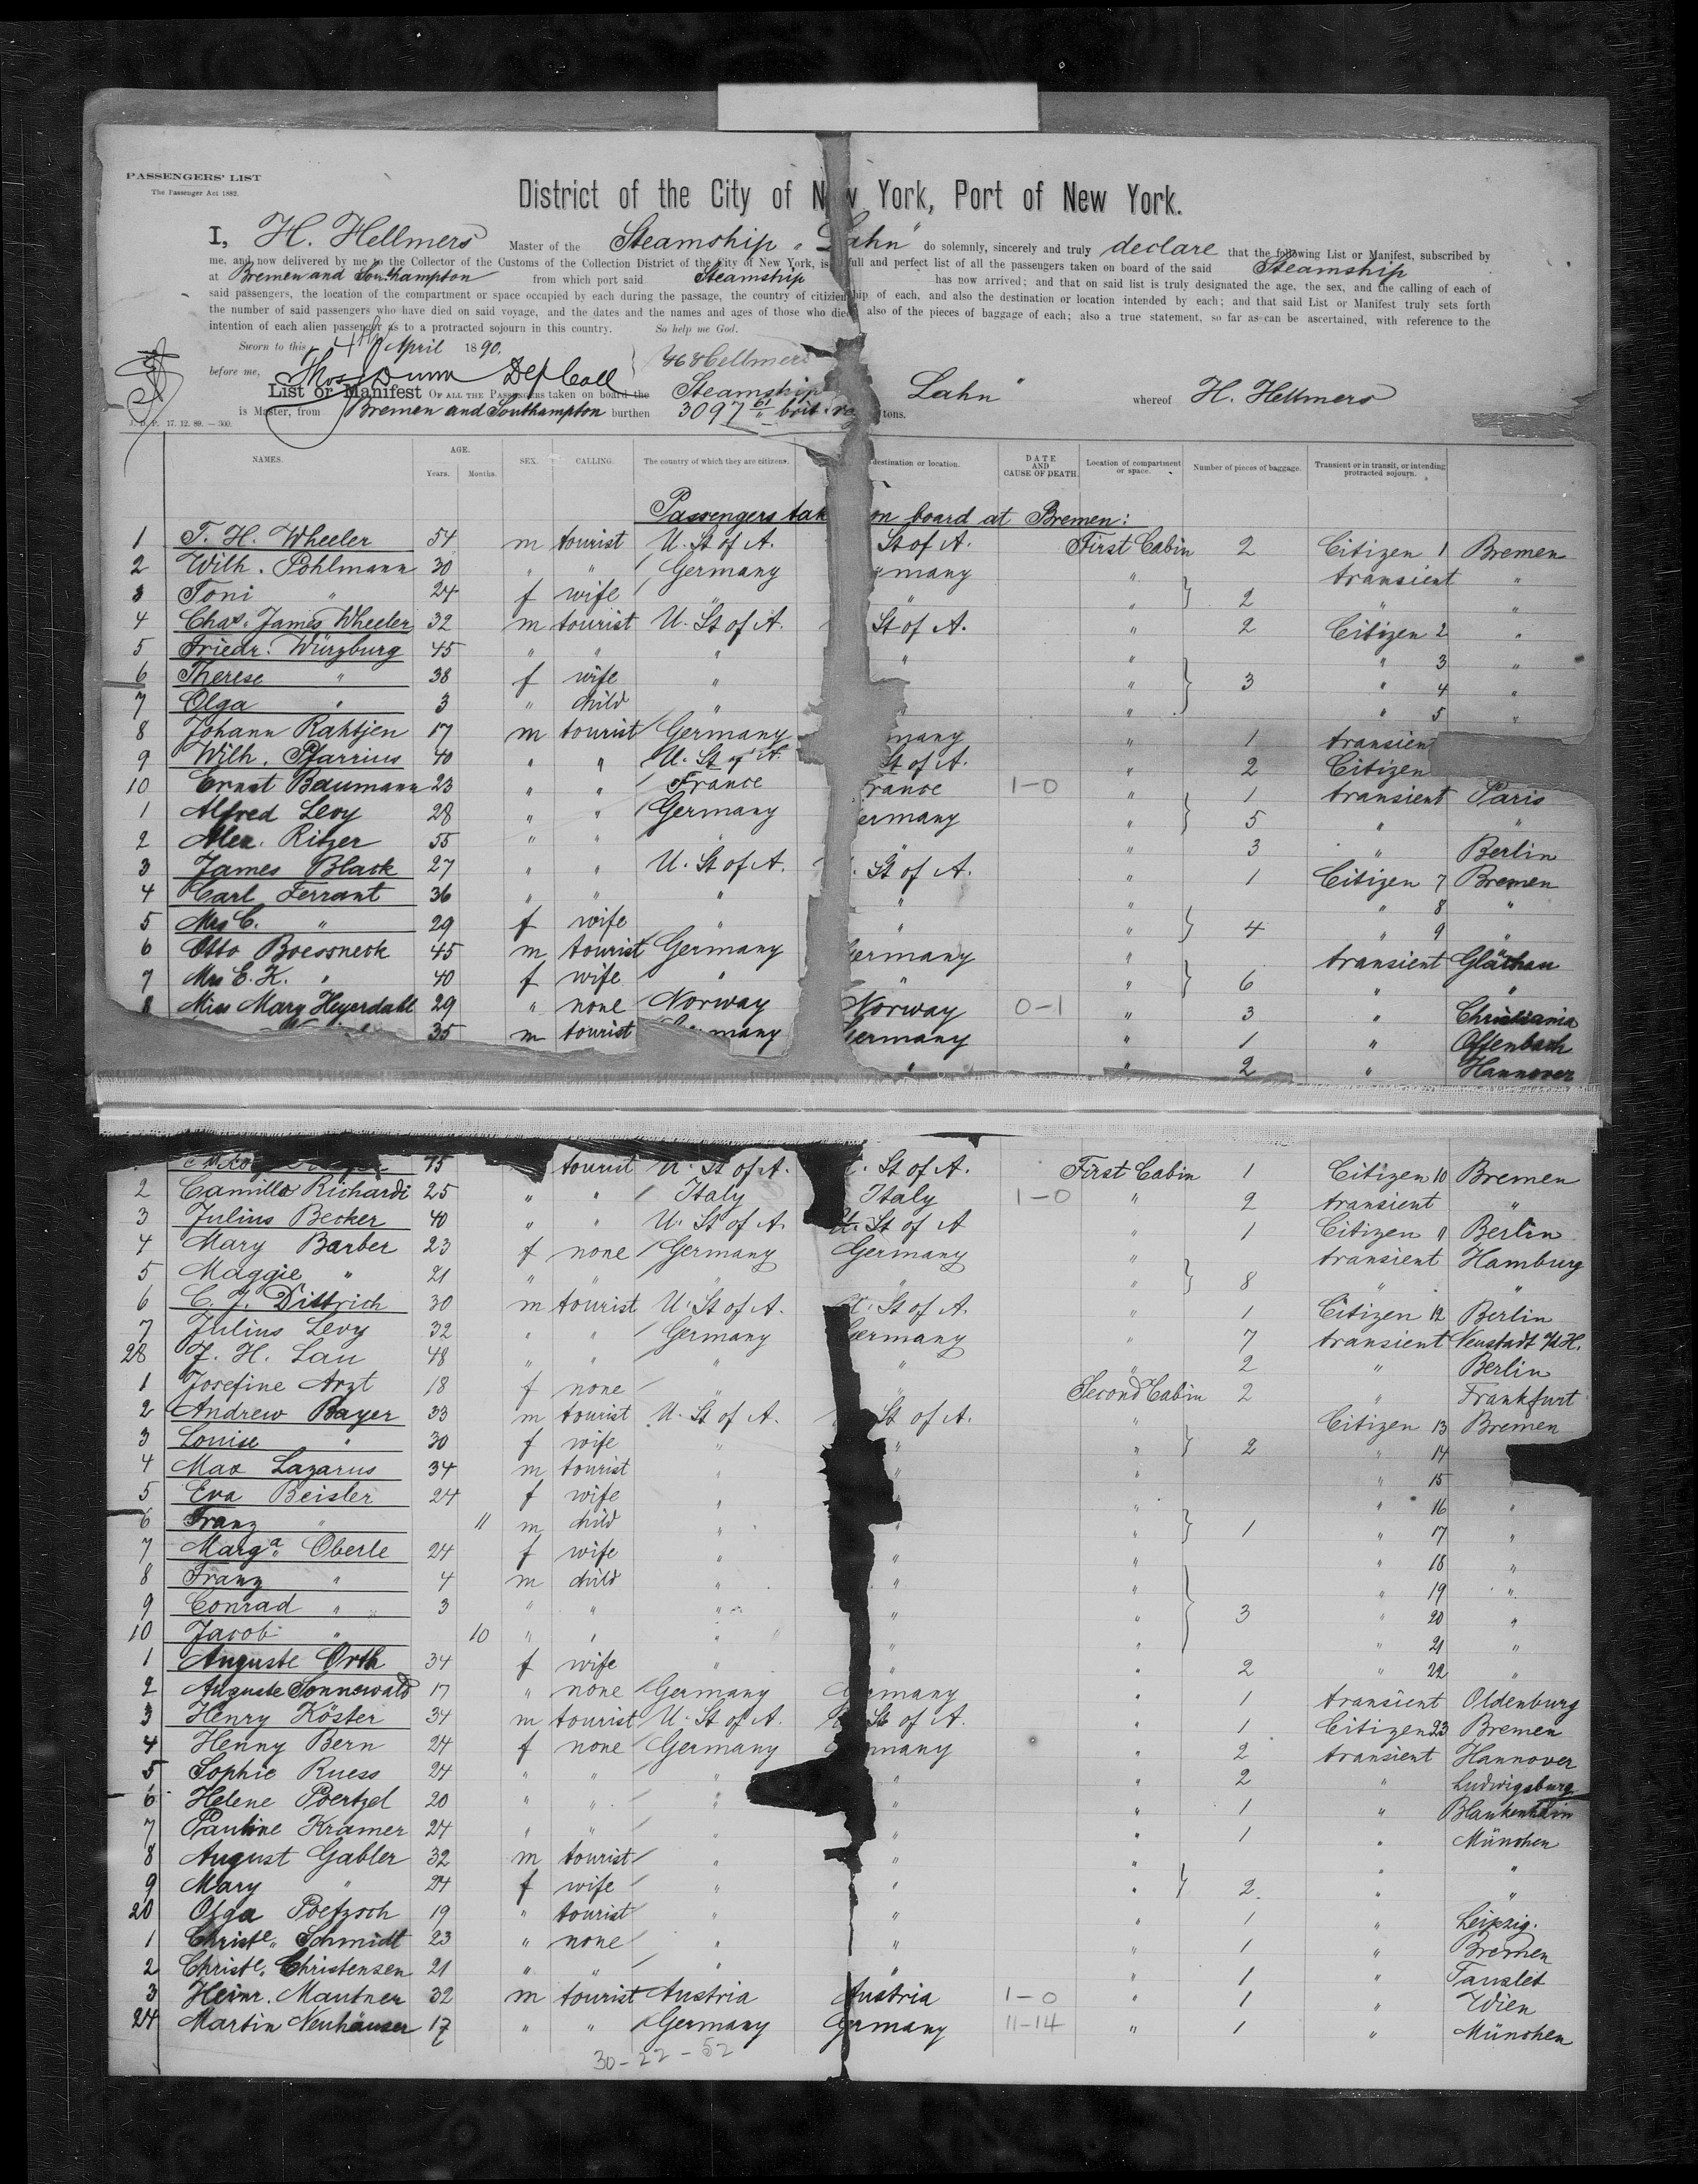 PASSENGERS' LIST
The Passenger Act 1882.
District of the City of New York, Port of New York.
I, H. Hellmers Master of the Steamship "Lahn" do solemnly, sincerely and truly declare that the following List or Manifest, subscribed by
me, and now delivered by me to the Collector of the Customs of the Collection District of the City of New York, is full and perfect list of all the passengers taken on board of the said Steamship
at Bremen and Southampton from which port said Steamship has now arrived; and that on said list is truly designated the age, the sex, and the calling of each of
said passengers, the location of the compartment or space occupied by each during the passage, the country of citizenship of each, and also the destination or location intended by each; and that said List or Manifest truly sets forth
the number of said passengers who have died on said voyage, and the dates and the names and ages of those who died, also of the pieces of baggage of each; also a true statement, so far as can be ascertained, with reference to the
intention of each alien passenger as to a protracted sojourn in this country. So help me God.
Sworn to this 4th April 1890.
before me, Thos Dunn Dep Coll Hellmers
List or Manifest OF ALL THE PASSENGERS taken on board the Steamship Lahn" whereof H. Hellmers
is Master, from Bremen and Southampton burthen 3097 61 tons.
J. D. P. 17. 12. 89. — 300.
NAMES. AGE. Years. Months. SEX. CALLING. The country of which they are citizens. destination or location. DATE AND CAUSE OF DEATH. Location of compartment or space. Number of pieces of baggage. Transient or in transit, or intending protracted sojourn.
Passengers tak on board at Bremen:
1 T. H. Wheeler 54 m tourist U. St of A. St of A. First Cabin 2 Citizen 1 Bremen
2 Wilh. Pohlmann 30 " " Germany many " transient "
3 Toni " 24 f wife " " " } 2 " "
4 Chas. James Wheeler 32 m tourist U. St of A. St of A. " 2 Citizen 2 "
5 Friedr. Würzburg 45 " " " " " " 3 "
6 Therese " 38 f wife " " } 3 " 4 "
7 Olga " 3 " child " " " 5 "
8 Johann Rahtjen 17 m tourist Germany many " 1 transient
9 Wilh. Pfarrius 40 " " U. St of A. St of A. " 2 Citizen
10 Ernst Baumann 23 " " France rance 1-0 " 1 transient Paris
1 Alfred Levy 28 " " Germany ermany " } 5 " "
2 Alex. Ritzer 55 " " " " " 3 " Berlin
3 James Black 27 " " U. St of A. St of A. " 1 Citizen 7 Bremen
4 Carl Ferrant 36 " " " " " " 8 "
5 Mrs C. " 29 f wife " " " } 4 " 9 "
6 Otto Boessneck 45 m tourist Germany ermany " transient Glauchau
7 Mrs E. K. " 40 f wife " " " } 6 " "
8 Miss Mary Heyerdahl 29 " none Norway Norway 0-1 " 3 " Christiania
35 m tourist Germany Germany " 1 " Offenbach
" " 2 " Hannover
75 tourist U. St of A. St of A. First Cabin 1 Citizen 10 Bremen
2 Camillo Richardi 25 " " Italy Italy 1-0 " 2 transient "
3 Julius Becker 40 " " U. St of A. U. St of A " 1 Citizen 11 Berlin
4 Mary Barber 23 f none Germany Germany " transient Hamburg
5 Maggie " 21 " " " " " } 8 " "
6 C. J. Dittrich 30 m tourist U. St of A. St of A. " 1 Citizen 12 Berlin
7 Julius Levy 32 " " Germany Germany " 7 transient Neustadt a/H.
28 J. H. Lau 48 " " " " " 2 " Berlin
1 Josefine Arzt 18 f none " " Second Cabin 2 " Frankfurt
2 Andrew Bayer 33 m tourist U. St of A. St of A. " Citizen 13 Bremen
3 Louise " 30 f wife " " " } 2 " 14
4 Max Lazarus 34 m tourist " " " " 15 "
5 Eva Beisler 24 f wife " " " 16 "
6 Franz " 11 m child " " " } 1 " 17 "
7 Marga. Oberle 24 f wife " " " " 18 "
8 Franz " 4 m child " " " " 19 "
9 Conrad " 3 " " " " " } 3 " 20 "
10 Jacob " 10 " " " " " " 21 "
1 Auguste Orth 34 f wife " " " 2 " 22 "
2 Auguste Sonnewald 17 " none Germany Germany " 1 transient Oldenburg
3 Henry Köster 34 m tourist U. St of A. St of A. " 1 Citizen 23 Bremen
4 Henny Bern 24 f none Germany many " 2 transient Hannover
5 Sophie Ruess 24 " " " " " 2 " Ludwigsburg
6 Helene Poertzel 20 " " " " " 1 " Blankenhain
7 Pauline Kramer 24 " " " " " 1 " München
8 August Gabler 32 m tourist " " " " "
9 Mary " 24 f wife " " " } 2 " "
20 Olga Poetzsch 19 " tourist " " " 1 " Leipzig.
1 Christe. Schmidt 23 " none " " " 1 " Bremen
2 Christe. Christensen 21 " " " " 1 " Tanslet
3 Heinr. Mautner 32 m tourist Austria Austria 1-0 " 1 " Wien
24 Martin Neuhäuser 17 " " Germany Germany 11-14 " 1 " München
30-22-52